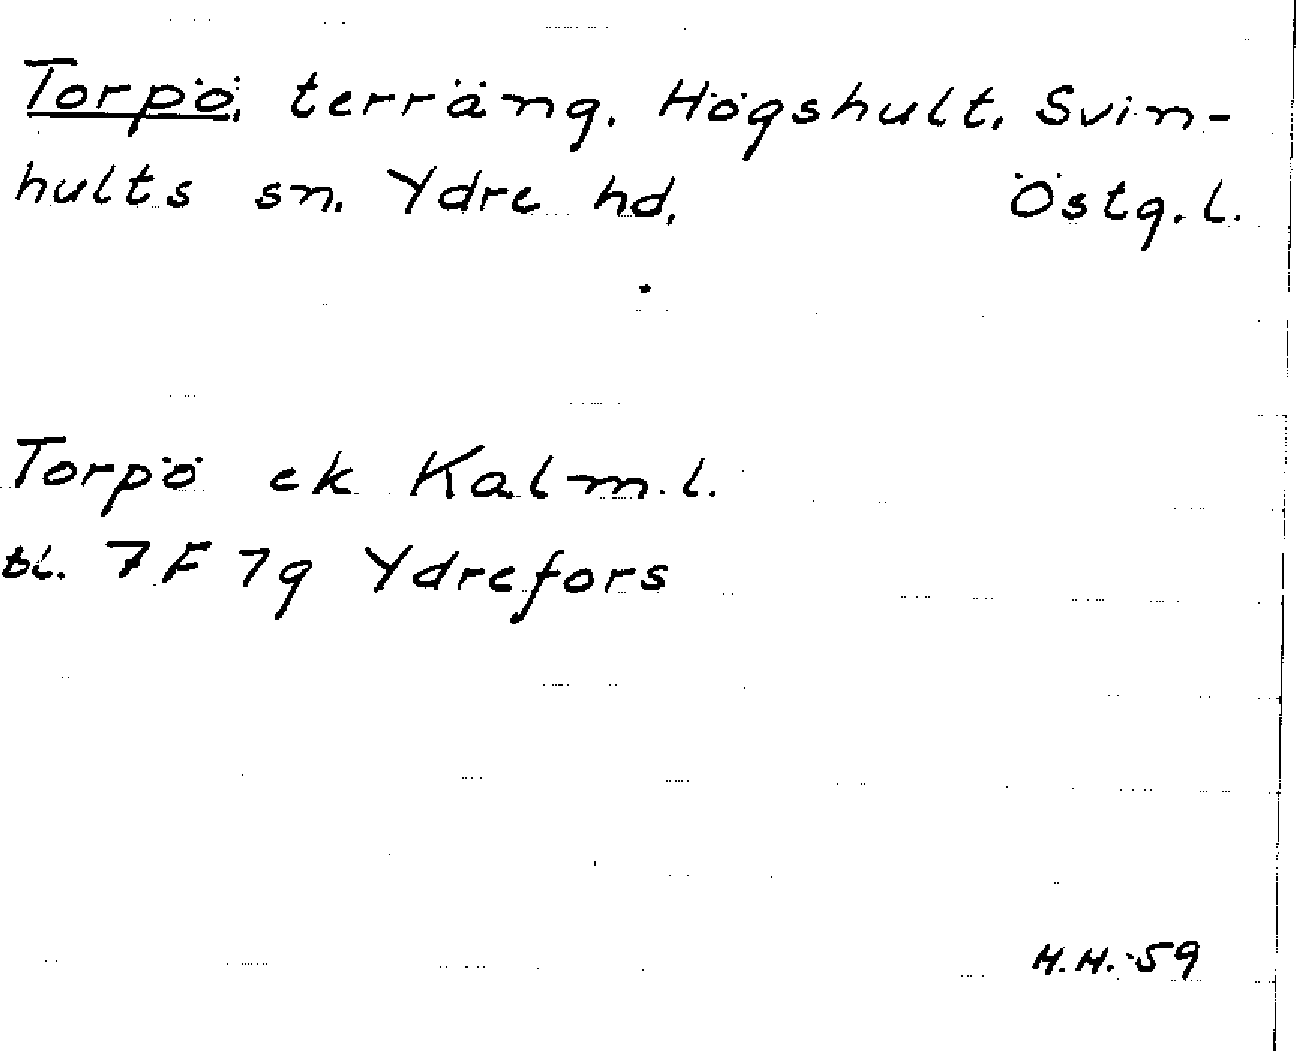 Torpö, terräng, Högshult, Svin-
hults sn. Ydre hd. Östg. l.
Torpö ek Kalm. l.
bl. 7 F 7g Ydrefors
H.H.-59